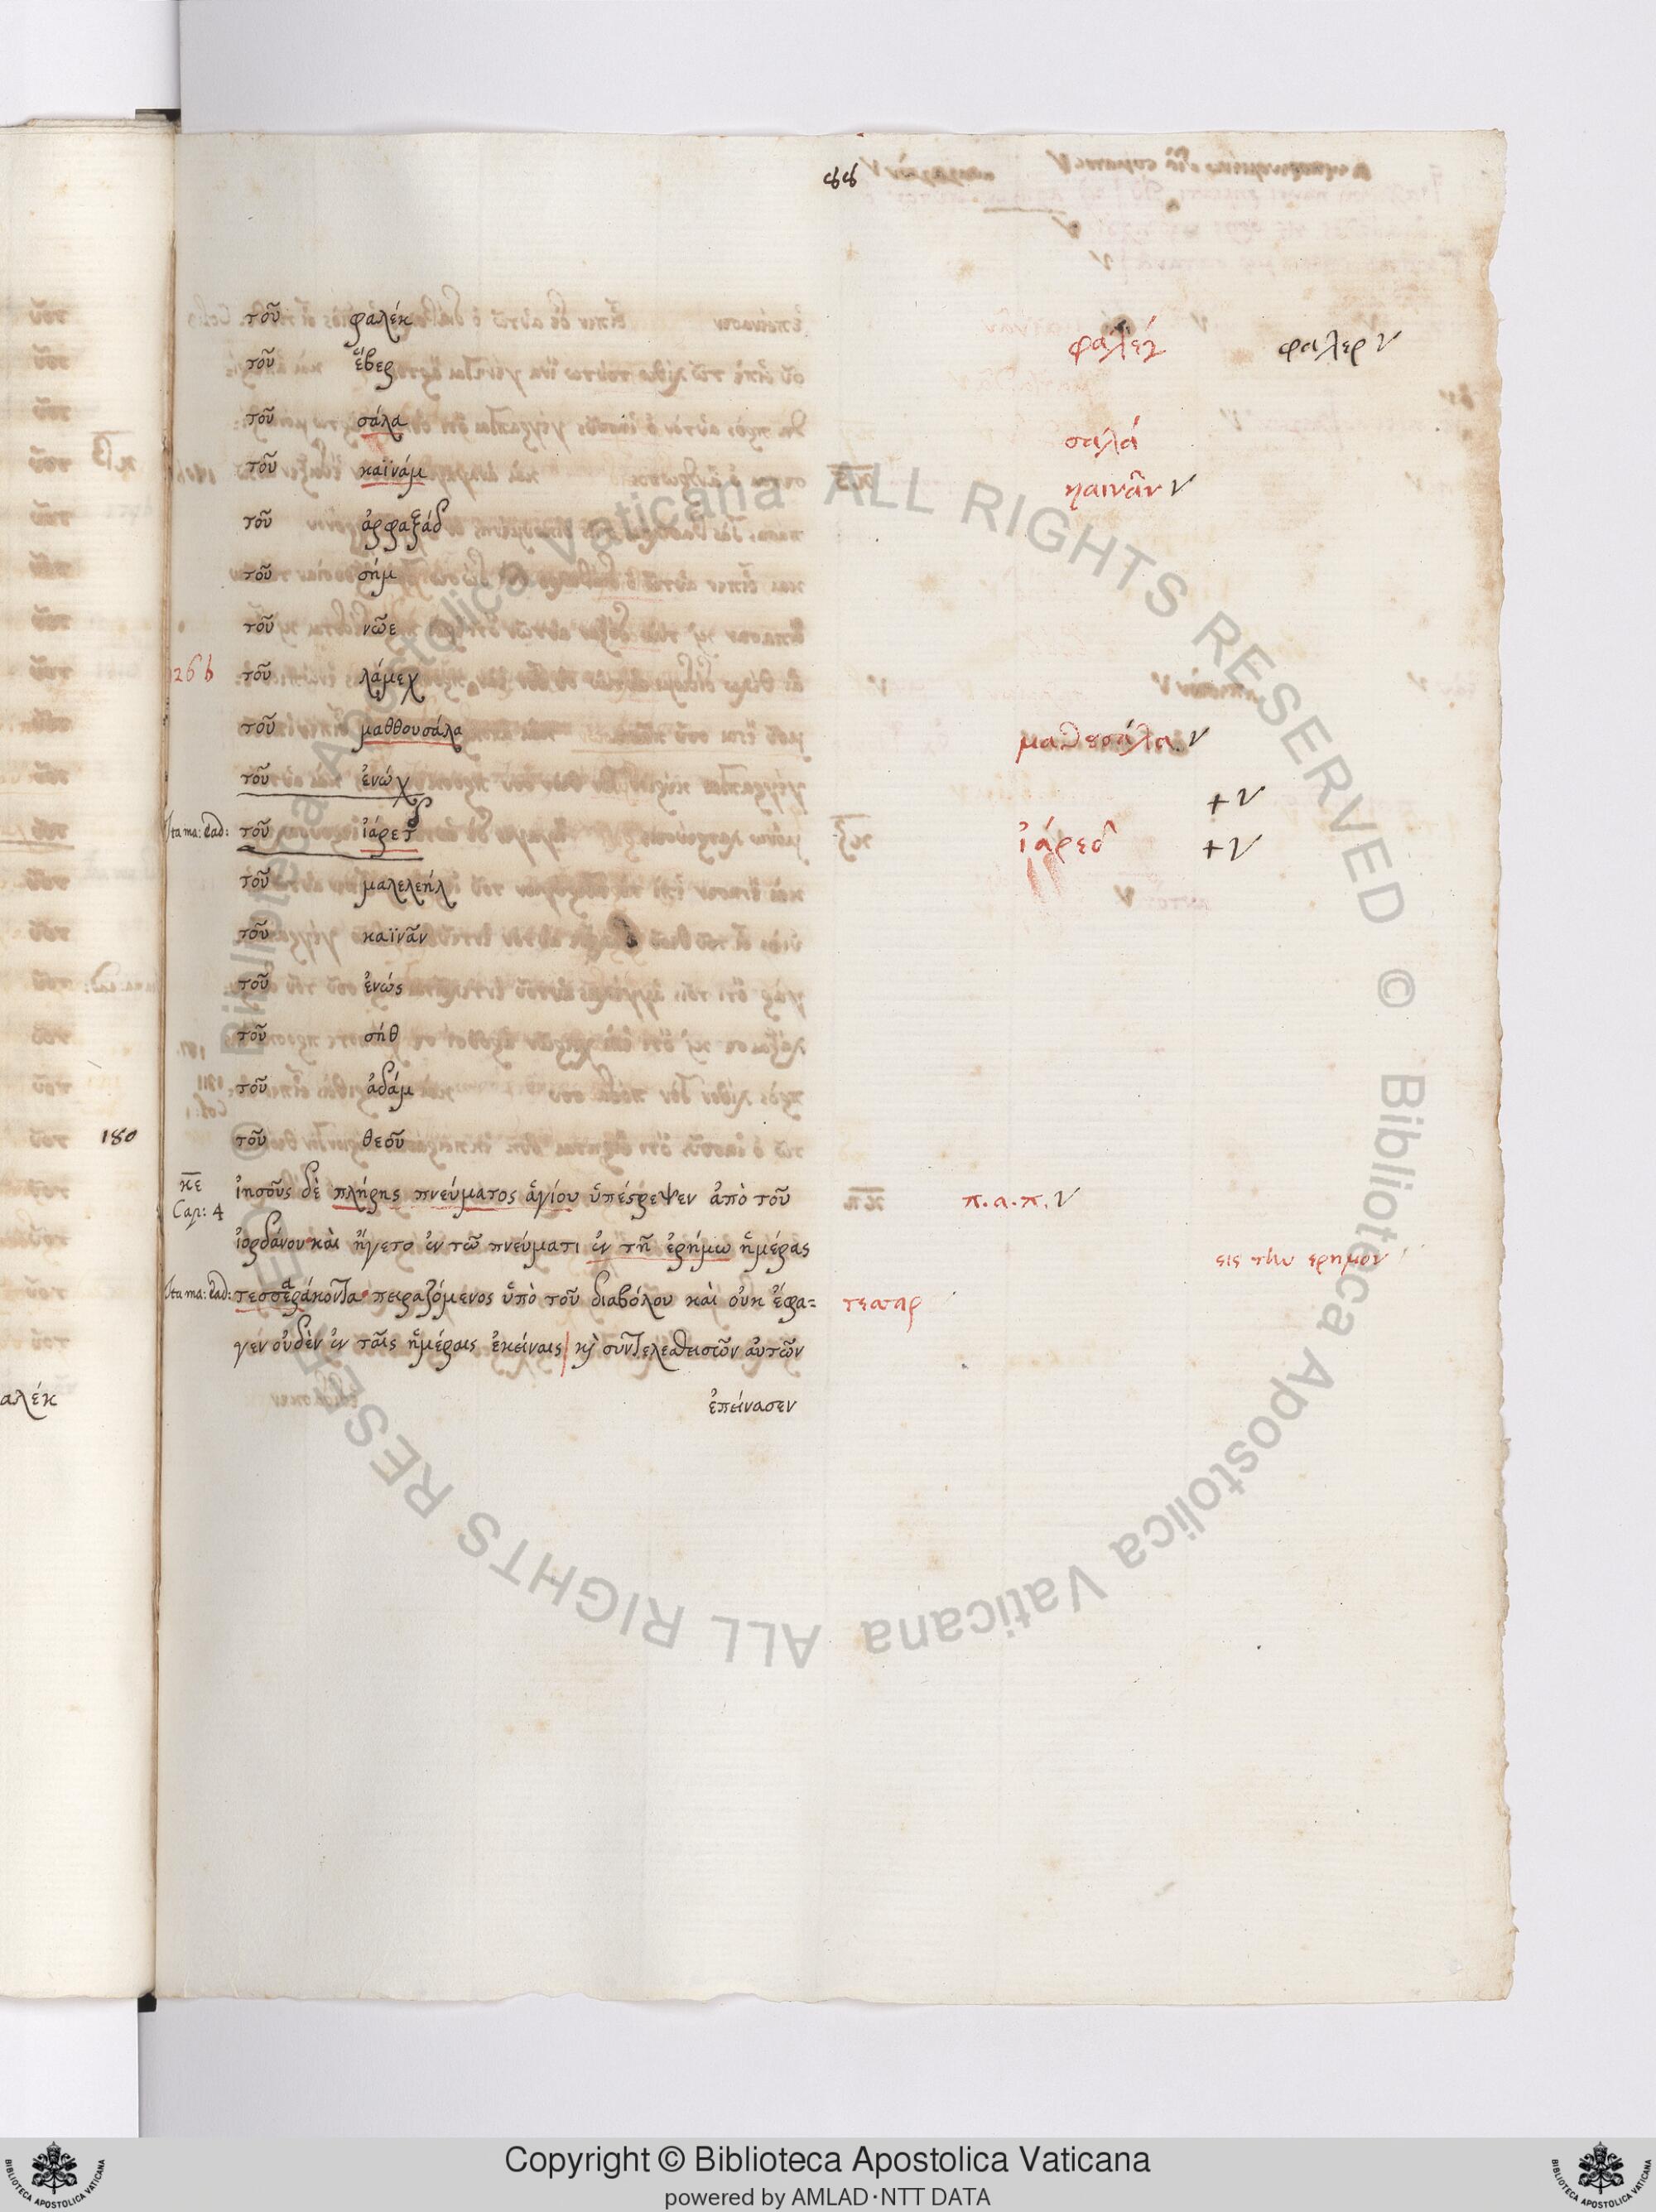 88
τοῦ φαλέκ φαλέγ φαλερ
τοῦ ἕβερ
τοῦ σάλα σαλά
τοῦ καϊνάμ καινᾶν
τοῦ ἀρφαξάδ
τοῦ σήμ
τοῦ νῶε
126 b τοῦ λάμεχ
τοῦ μαθθουσάλα μαθουσάλα
τοῦ ἐνώχ +
τοῦ ἰάρετ ἰάρεδ +
τοῦ μαλελεήλ
τοῦ καϊνᾶν
τοῦ ἐνώς
τοῦ σήθ
τοῦ ἀδάμ
180 τοῦ θεοῦ
κε ἰησοῦς δὲ πλήρης πνεύματος ἁγίου ὑπέστρεψεν ἀπὸ τοῦ π. α. π.
Cap: 4
ἰορδάνου καὶ ἤγετο ἐν τῶ πνεύματι ἐν τῆ ἐρήμω ἡμέρας εις την ερημον
τεσσεράκοντα πειραζόμενος ὑπὸ τοῦ διαβόλου καὶ οὐκ ἔφα= τεσσαρ
γεν οὐδὲν ἐν ταῖς ἡμέραις ἐκείναις καὶ συντελεσθεισῶν αὐτῶν
αλέκ
ἐπείνασεν
© Biblioteca Apostolica Vaticana ALL RIGHTS RESERVED © Biblioteca Apostolica Vaticana ALL RIGHTS RESERVED
Copyright © Biblioteca Apostolica Vaticana
powered by AMLAD·NTT DATA
BIBLIOTECA APOSTOLICA VATICANA
BIBLIOTECA APOSTOLICA VATICANA